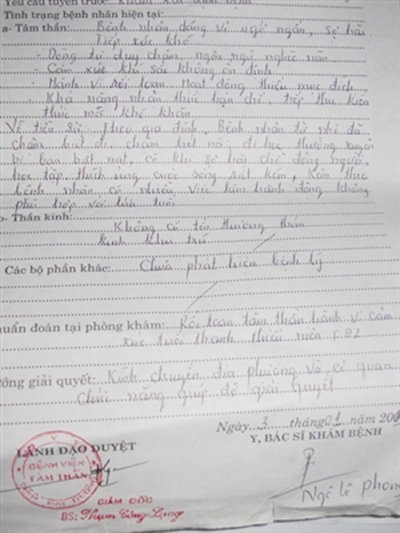 Yêu cầu tuyến trước:
Tình trạng bệnh nhân hiện tại:
a- Tâm thần: Bệnh nhân đáng vẻ ngô ngần, sợ hãi
tiếp xúc khó
- Dòng tư duy chậm, ngôn ngữ nghèo nàn
- Cảm xúc khí sắc không ổn định
- Hành vi rối loạn hoạt động thiếu mục đích
- Khả năng nhận thức hạn chế, tiếp thu kiến
thức mới khó khăn
Về tiền sử: theo gia đình, Bệnh nhân từ nhỏ đã
chậm biết đi chậm biết nói, đi học thường xuyên
bị bạn bắt nạt, có khi sợ hãi chỗ đông người,
học tập, thích ứng cuộc sống rất kém, Kiến thức
bệnh nhân có nhiều việc làm hành động không
phù hợp với lứa tuổi
b- Thần kinh:
Không có tổn thương thần
kinh khu trú
Các bộ phận khác: Chưa phát hiện bệnh lý
Chuẩn đoán tại phòng khám: Rối loạn tâm thần hành vi cảm
xúc tuổi thanh thiếu niên
Hướng giải quyết: Kính chuyển địa phương và cơ quan
chức năng giúp đỡ giải quyết
Ngày 3 tháng 01 năm 200
LÃNH ĐẠO DUYỆT
Y, BÁC SĨ KHÁM BỆNH
BỆNH VIỆN
TÂM THẦN
GIÁM ĐỐC
BS: Phạm Công
Ngô Lê Phong